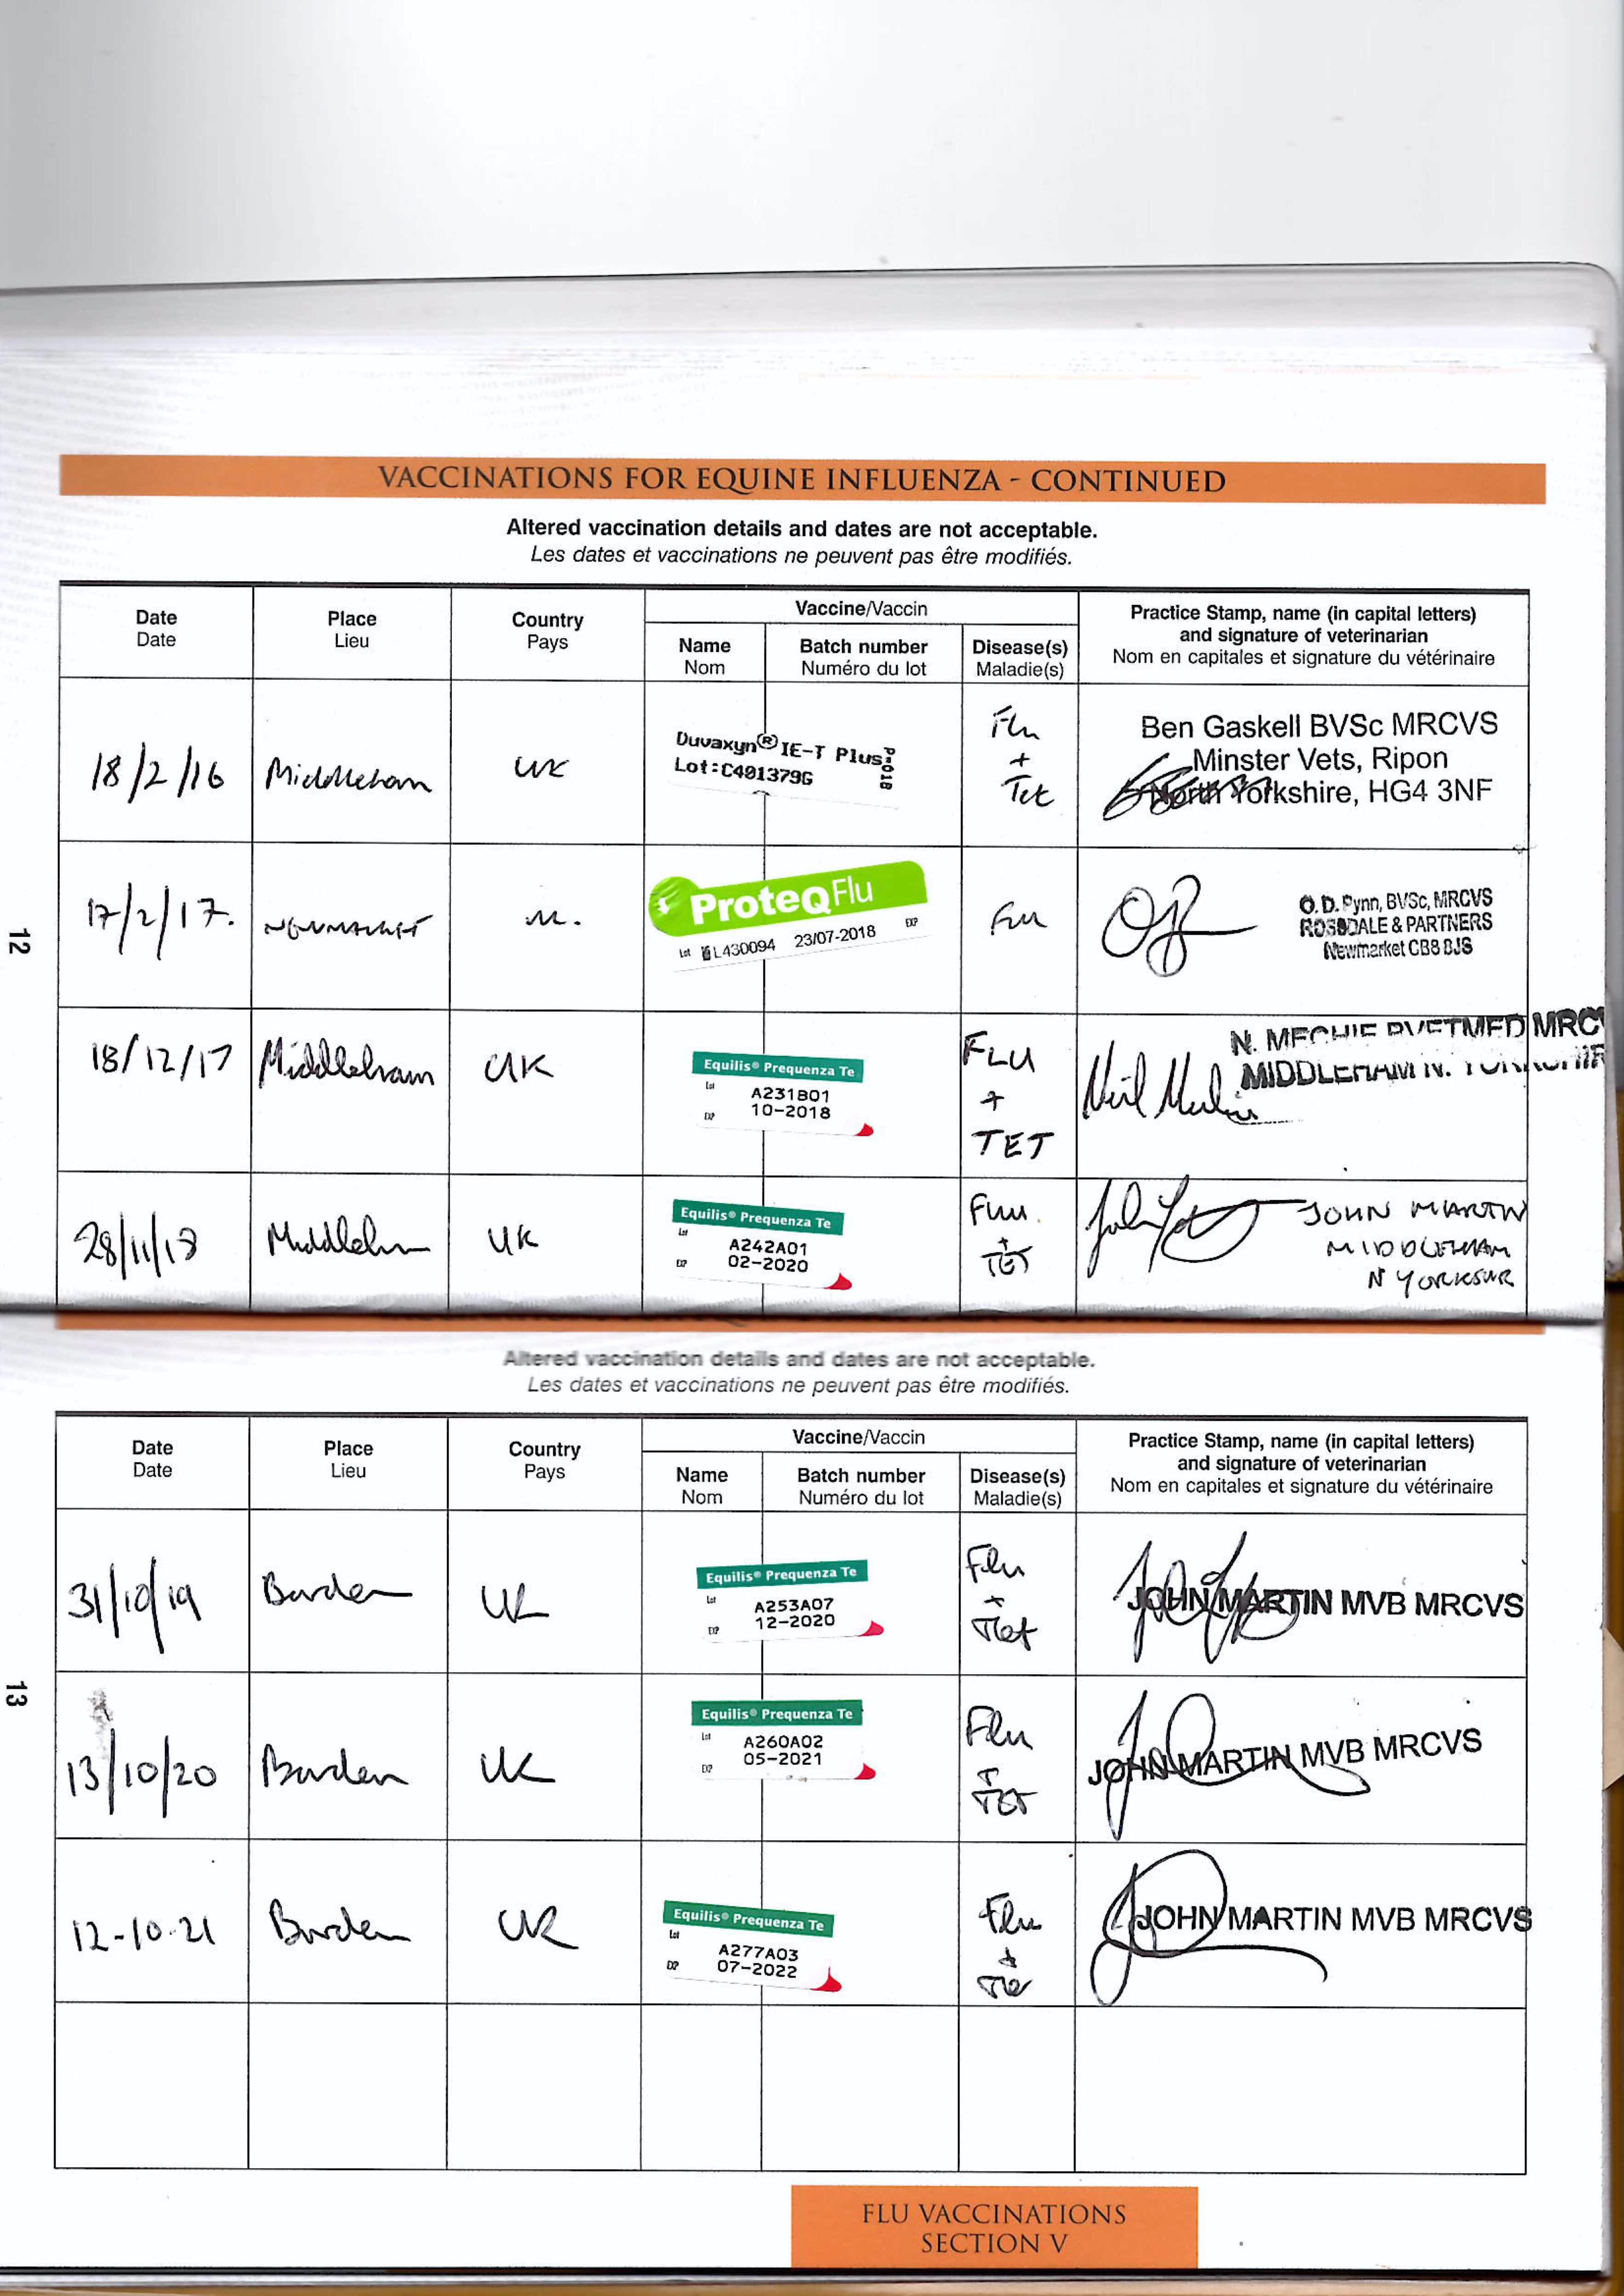 VACCINATIONS FOR EQUINE INFLUENZA - CONTINUED
Altered vaccination details and dates are not acceptable.
Les dates et vaccinations ne peuvent pas être modifiés.
Date
Date
Place
Lieu
Country
Pays
Vaccine/Vaccin
Name
Nom
Batch number
Numéro du lot
Disease(s)
Maladie(s)
Practice Stamp, name (in capital letters)
and signature of veterinarian
Nom en capitales et signature du vétérinaire
18/2/16
Middleham
UK
Duvaxyn® IE-T Plus
Lot:C401379G
Flu
+
Tet
Ben Gaskell BVSc MRCVS
Minster Vets, Ripon
North Yorkshire, HG4 3NF
12
17/2/17.
NEWMARKET
ProteqFlu
Lot L430094 23/07-2018 EXP
Flu
O.D. Pynn, BVSc, MRCVS
ROSSDALE & PARTNERS
Newmarket CB8 8JS
18/12/17
Middleham
UK
Equilis® Prequenza Te
Lot
A231B01
EXP 10-2018
FLU
+
TET
N. MECHIE BVETMED MRC
MIDDLEHAM N.
28/11/18
Middleham
UK
Equilis® Prequenza Te
Lot
A242A01
EXP 02-2020
Flu
+
TET
JOHN MARTIN
MIDDLEHAM
N YORKSHR
Altered vaccination details and dates are not acceptable.
Les dates et vaccinations ne peuvent pas être modifiés.
Date
Date
Place
Lieu
Country
Pays
Vaccine/Vaccin
Name
Nom
Batch number
Numéro du lot
Disease(s)
Maladie(s)
Practice Stamp, name (in capital letters)
and signature of veterinarian
Nom en capitales et signature du vétérinaire
31/10/19
Barden
UK
Equilis® Prequenza Te
Lot
A253A07
EXP 12-2020
Flu
+
Tet
JOHN MARTIN MVB MRCVS
13
13/10/20
Barden
UK
Equilis® Prequenza Te
Lot
A260A02
EXP 05-2021
Flu
+
TET
JOHN MARTIN MVB MRCVS
12-10-21
Barden
UK
Equilis® Prequenza Te
Lot
A277A03
EXP 07-2022
Flu
+
Tet
JOHN MARTIN MVB MRCVS
FLU VACCINATIONS
SECTION V